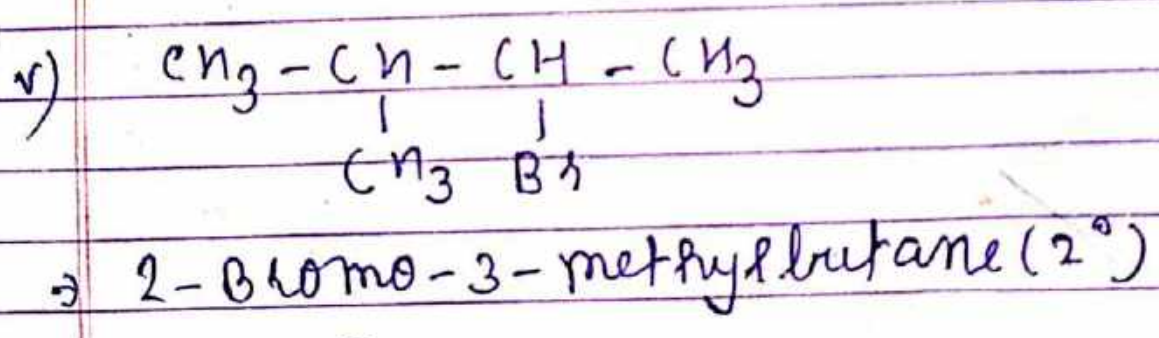 v) CH3 - CH - CH - CH3
| |
CH3 Br
⇒ 2-Bromo-3-methylbutane (2°)